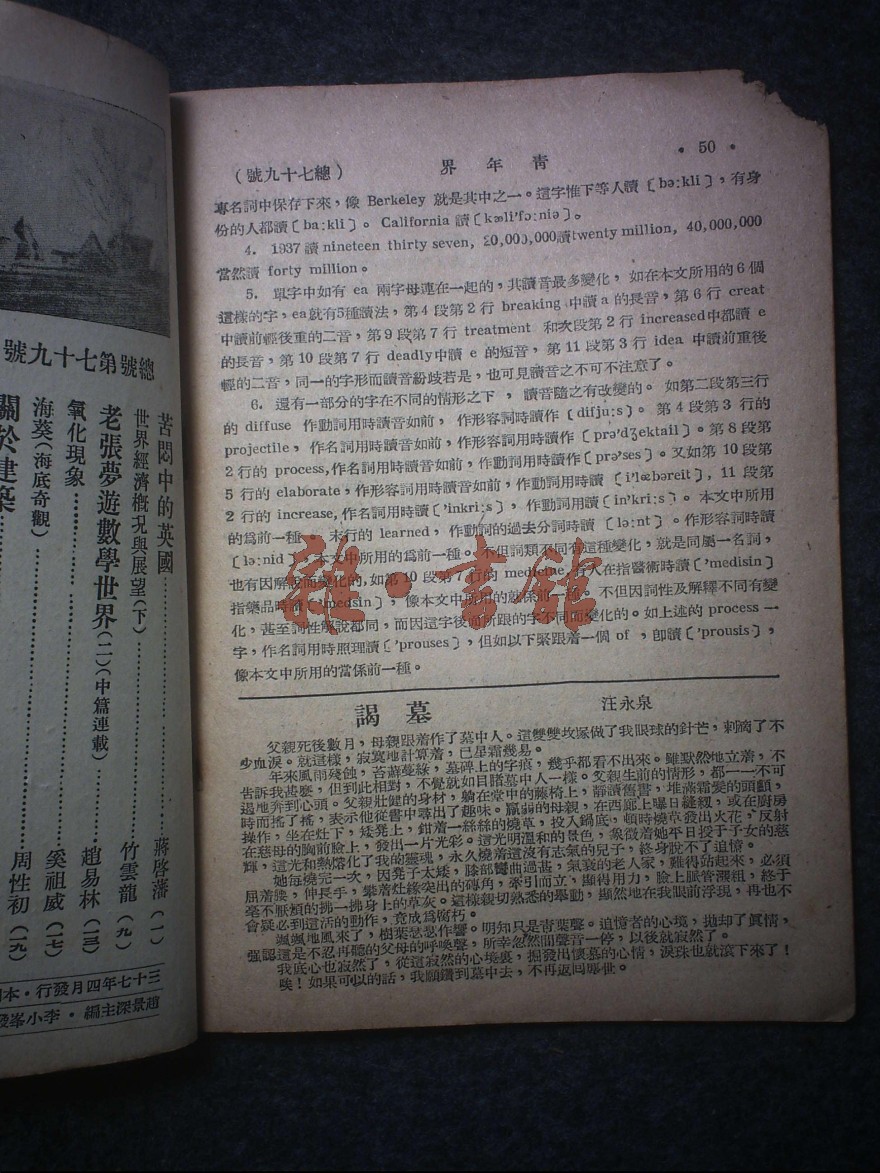 總號第七十九號
苦悶中的英國……蔣啓藩(一)
世界經濟概況與展望(下)
老張夢遊數學世界(二)(中篇連載)……竹雲龍(九)
氧化現象……趙易林(一三)
海葵(海底奇觀)……奚祖威(一七)
關於建築……周性初(一九)
三十七年四月發行・本
趙景深主編・李小峯發
(總七十九號) 青年界 • 50 •
專名詞中保存下來,像 Berkeley 就是其中之一。這字惟下等人讀〔bə:kli〕,有身
份的人都讀〔ba:kli〕。 California 讀〔kæli'fɔ:niə〕。
4. 1937 讀 nineteen thirty seven, 20,000,000讀twenty million, 40,000,000
當然讀 forty million。
5. 單字中如有 ea 兩字母連在一起的,其讀音最多變化,如在本文所用的6個
這樣的字,ea就有5種讀法,第4段第2行 breaking 中讀 a 的長音,第6行 creat
中讀前輕後重的二音,第9段第7行 treatment 和次段第2行 increased中都讀 e
的長音,第10段第7行 deadly中讀 e 的短音,第11段第3行 idea 中讀前重後
輕的二音,同一的字形而讀音紛歧若是,也可見讀音之不可不注意了。
6. 還有一部分的字在不同的情形之下,讀音隨之有改變的。如第二段第三行
的 diffuse 作動詞用時讀音如前,作形容詞時讀作〔difju:s〕。第4段第3行的
projectile,作名詞用時讀音如前,作形容詞用時讀作〔prə'dʒektail〕。第8段第
2行的 process,作名詞用時讀音如前,作動詞用時讀作〔prə'ses〕。又如第10段第
5行的 elaborate,作形容詞用時讀音如前,作動詞用時讀〔i'læbəreit〕,11段第
2行的 increase,作名詞用時讀〔'inkri:s〕,作動詞用讀〔in'kri:s〕。本文中所用
的爲前一種。末行的 learned,作動詞的過去分詞時讀〔lə:nt〕。作形容詞時讀
〔lə:nid〕,本文中所用的爲前一種。不但詞類不同有這種變化,就是同屬一名詞,
也有因解說而變化的,如第10段第7行的 medicine,有人在指醫術時讀〔'medisin〕
指藥品時讀〔'medsin〕,像本文中所用的就係前一種。不但因詞性及解釋不同有變
化,甚至詞性解說都同,而因這字後面所跟的字不同而變化的。如上述的 process 一
字,作名詞用時照理讀〔'prouses〕,但如以下緊跟着一個 of,卽讀〔'prousis〕,
像本文中所用的當係前一種。
謁墓 汪永泉
父親死後數月,母親跟着作了墓中人。這雙雙坟冢做了我眼球的針芒,刺滴了不
少血淚。就這樣,寂寞地計算着,已星霜幾易。
年來風雨殘蝕,苔蘚蔓綠,墓碑上的字痕,幾乎都看不出來。雖默然地立着,不
告訴我甚麼,但到此相對,不覺就如目諸墓中人一樣。父親生前的情形,都一一不可
遏地奔到心頭。父親壯健的身材,躺在堂中的藤椅上,靜讀舊書,堆滿霜髮的頭顱,
時而搖了搖,表示他從書中尋出了趣味。羸弱的母親,在西廊上曝日縫紉,或在廚房
操作,坐在灶下,矮凳上,鉗着一絲絲的燒草,投入鍋底,頓時燒草發出火花,反射
在慈母的胸前臉上,發出一片光彩。這光明溫和的景色,象徵着她平日授于子女的慈
輝,這光和熱熔化了我的靈魂,永久燒着這沒有志氣的兒子,終身脫不了追憶。
她每燒完一次,因凳子太矮,膝部彎曲過甚,氣衰的老人家,難得站起來,必須
屈着腰,伸長手,攀着灶緣突出的磚角,牽引而立,顯得用力,臉上脈管漲粗,終于
毫不厭煩的拂一拂身上的草灰。這樣親切熟悉的舉動,顯然地在我眼前浮現,再也不
會疑必到這活的動作,竟成爲腐朽。
颯颯地風來了,樹葉瑟瑟作響。明知只是靑葉聲。追憶者的心境,拋却了眞情,
强認這是不忍再聽的父母的呼喚聲,所幸忽然間聲音一停,以後就寂然了。
我底心也寂然了,從這寂然的心境裏,掘發出懷墓的心情,淚珠也就滾下來了!
唉!如果可以的話,我願鑽到墓中去,不再返回塵世。
雜・書館